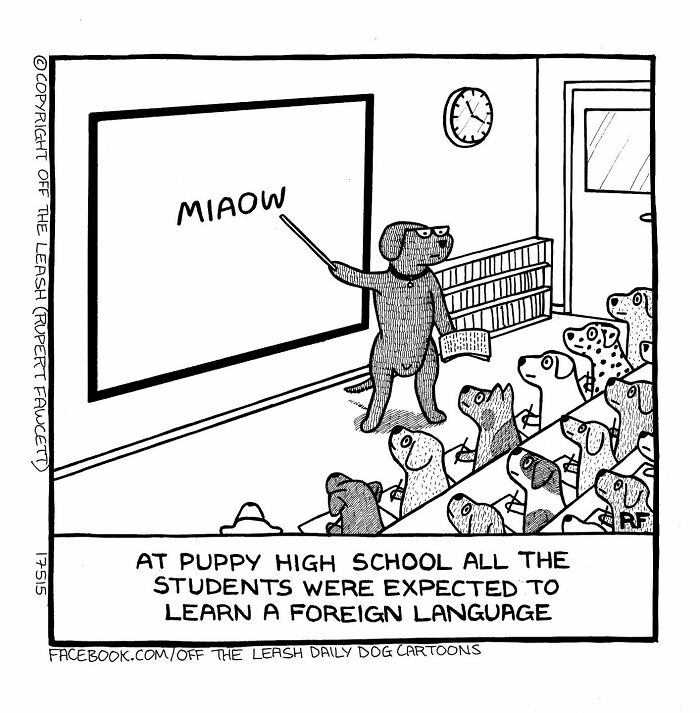 © COPYRIGHT OFF THE LEASH (RUPERT FAWCETT)
17515
MIAOW
RF
AT PUPPY HIGH SCHOOL ALL THE
STUDENTS WERE EXPECTED TO
LEARN A FOREIGN LANGUAGE
FACEBOOK.COM/OFF THE LEASH DAILY DOG CARTOONS